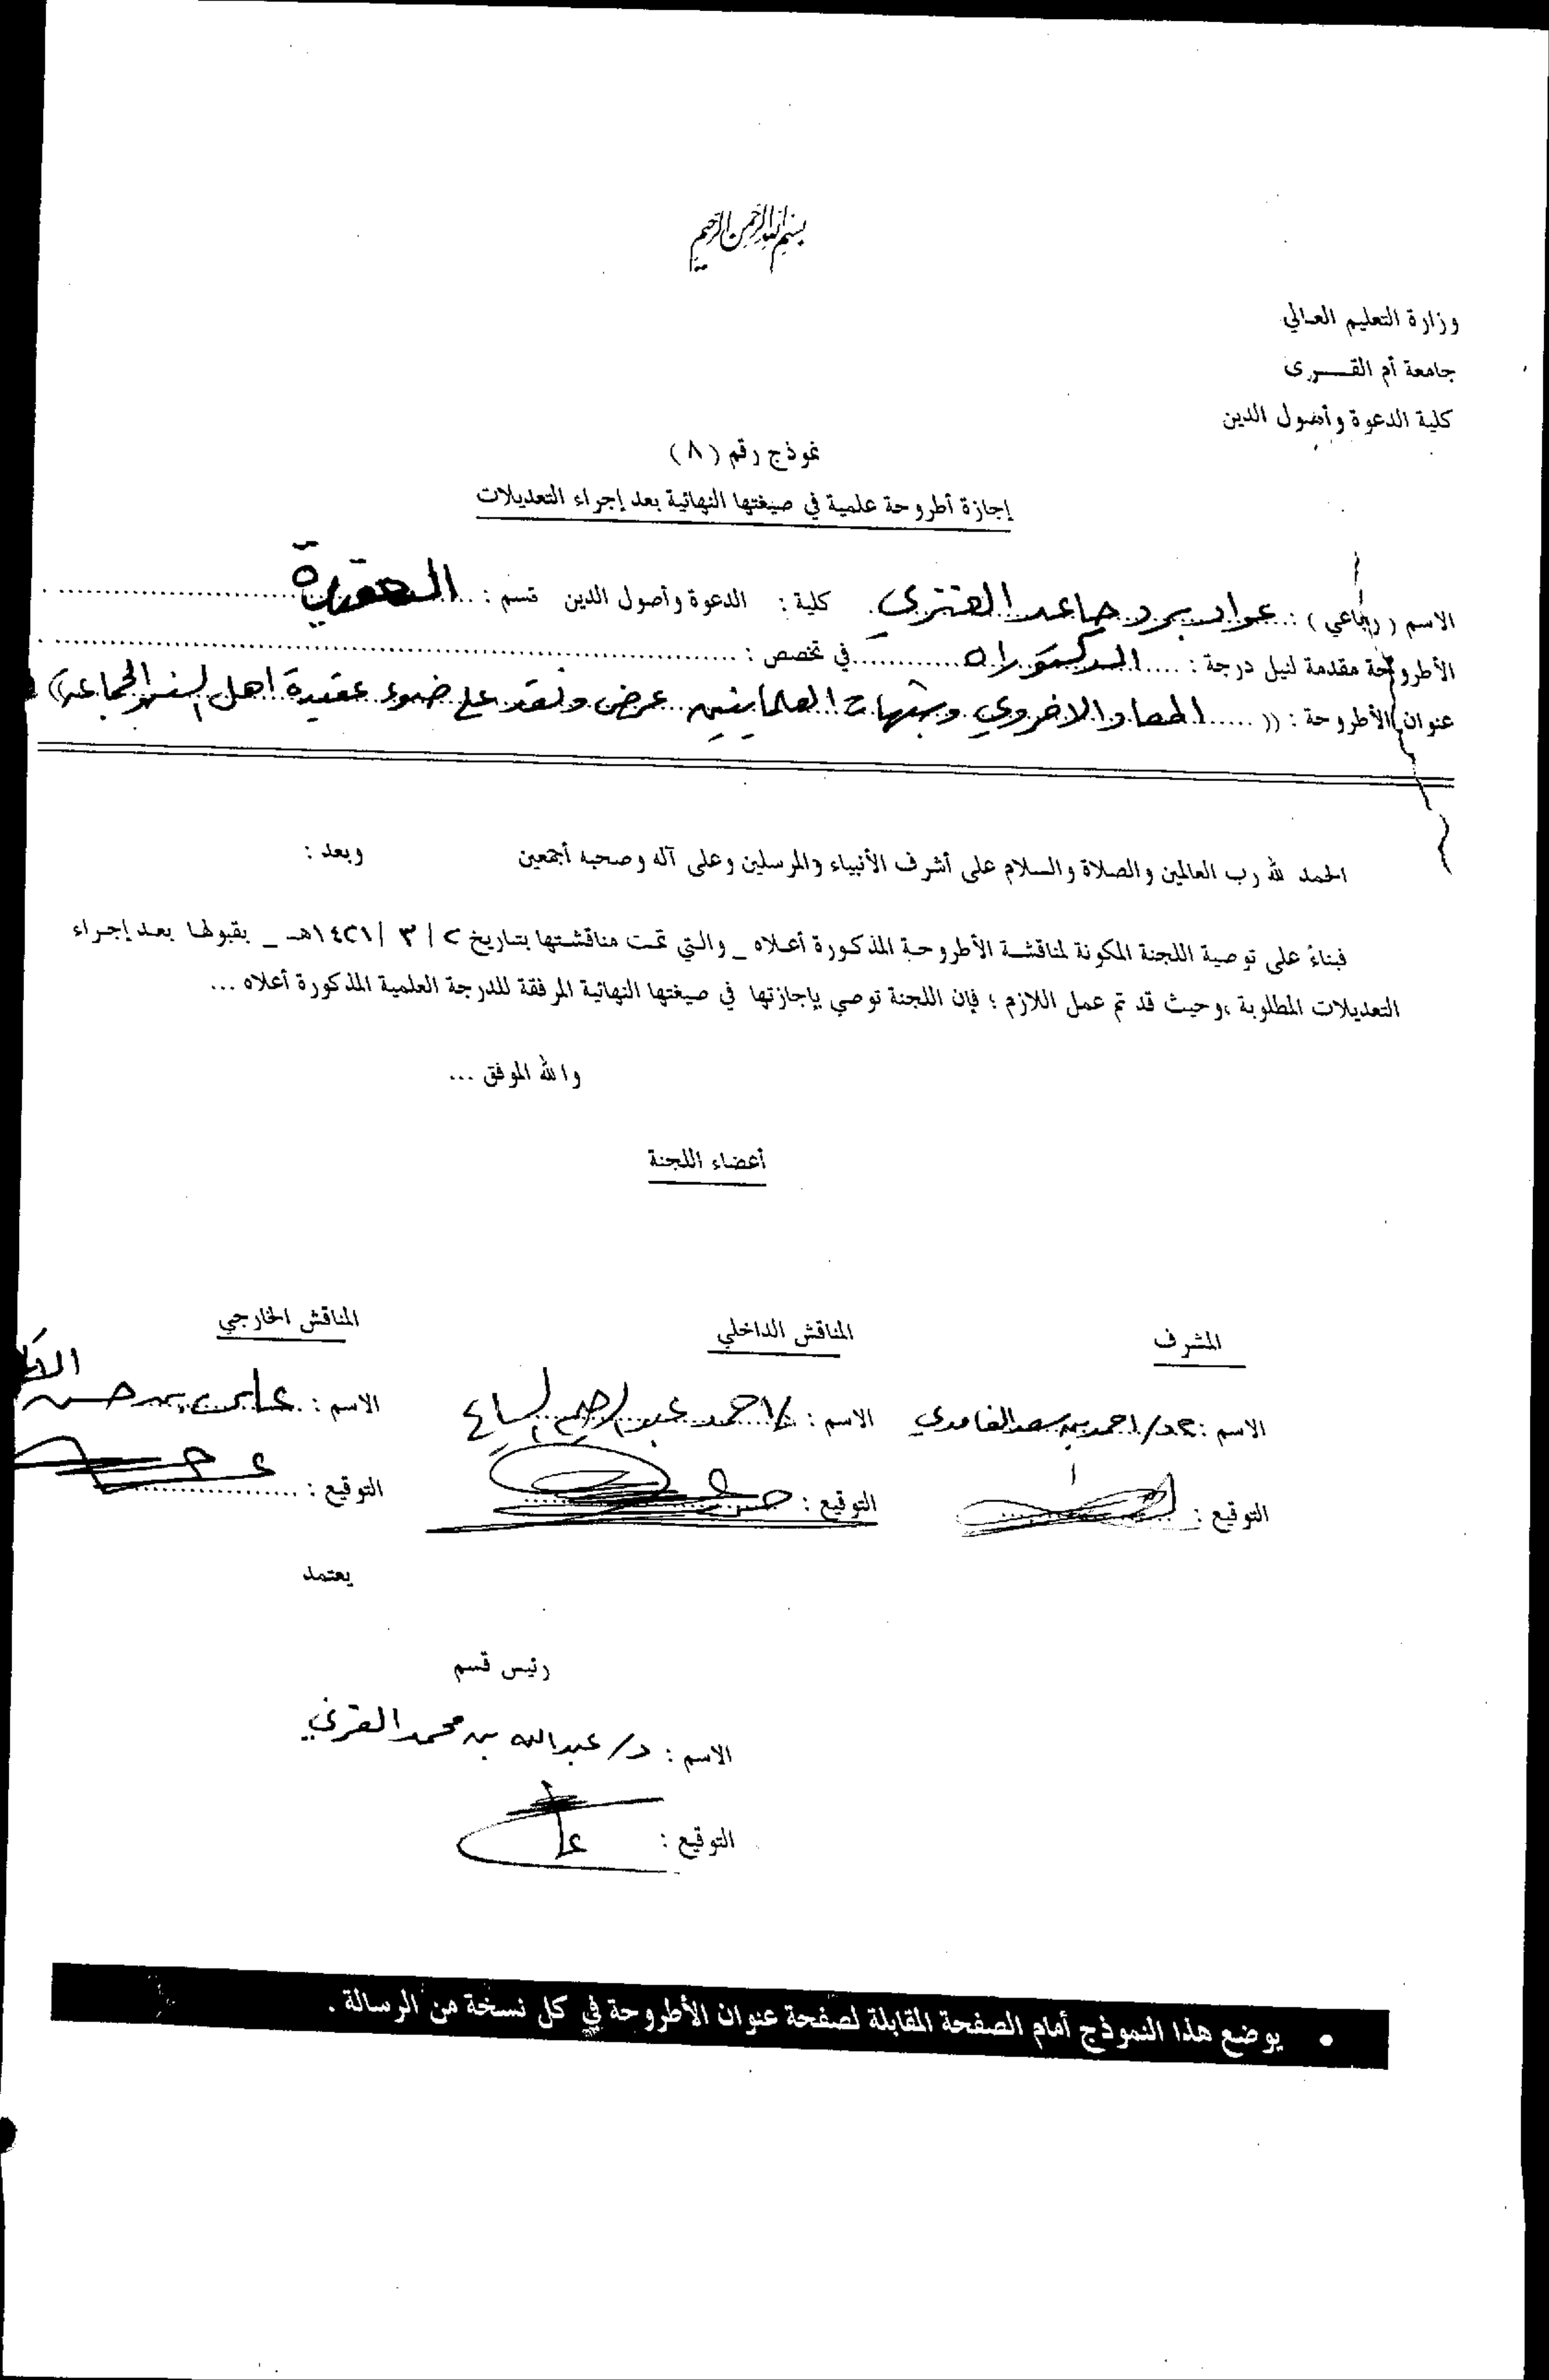 بسم الله الرحمن الرحيم
وزارة التعليم العالي
جامعة أم القــرى
كلية الدعوة وأصول الدين
نموذج رقم (٨)
إجازة أطروحة علمية في صيغتها النهائية بعد إجراء التعديلات
الاسم (رباعي) : عواد برد جاعد العنزي كلية : الدعوة وأصول الدين قسم : العقيدة
الأطروحة مقدمة لنيل درجة : الدكتوراه في تخصص :
عنوان الأطروحة : (( المعاد الاخروي وشبهات العلمانيين عرض ونقد على ضوء عقيدة اهل السنة والجماعة ))
الحمد لله رب العالمين والصلاة والسلام على أشرف الأنبياء والمرسلين وعلى آله وصحبه أجمعين وبعد :
فبناءً على توصية اللجنة المكونة لمناقشة الأطروحة المذكورة أعلاه _ والتي تمت مناقشتها بتاريخ ٢ / ٣ / ١٤٢١هـ _ بقبولها بعد إجراء
التعديلات المطلوبة ،وحيث قد تم عمل اللازم ؛ فإن اللجنة توصي بإجازتها في صيغتها النهائية المرفقة للدرجة العلمية المذكورة أعلاه ...
والله الموفق ...
أعضاء اللجنة
المشرف المناقش الداخلي المناقش الخارجي
الاسم : أ.د/ احمد بن سعد الغامدي الاسم : احمد عبد الرحيم السايح الاسم : بن حسن
التوقيع : التوقيع : التوقيع :
يعتمد
رئيس قسم
الاسم : د/ عبدالله بن محمد القرني
التوقيع :
• يوضع هذا النموذج أمام الصفحة المقابلة لصفحة عنوان الأطروحة في كل نسخة من الرسالة .